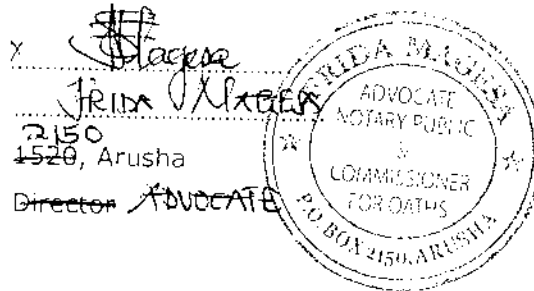 Magesa
FRIDA MAGESA
2150
1520, Arusha
Director ADVOCATE
FRIDA MAGESA
ADVOCATE
NOTARY PUBLIC
&
COMMISSIONER
FOR OATHS
P.O. BOX 2150, ARUSHA